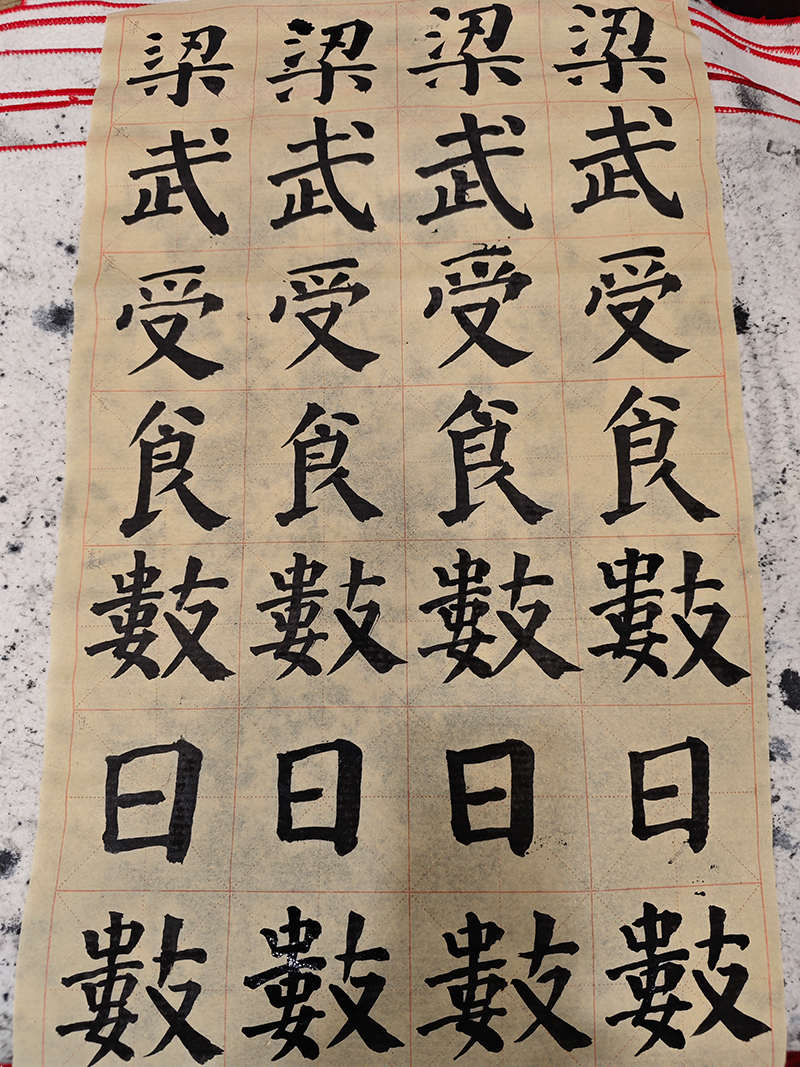 梁梁梁梁
武武武武
受受受受
食食食食
數數數數
日日日日
數數數數